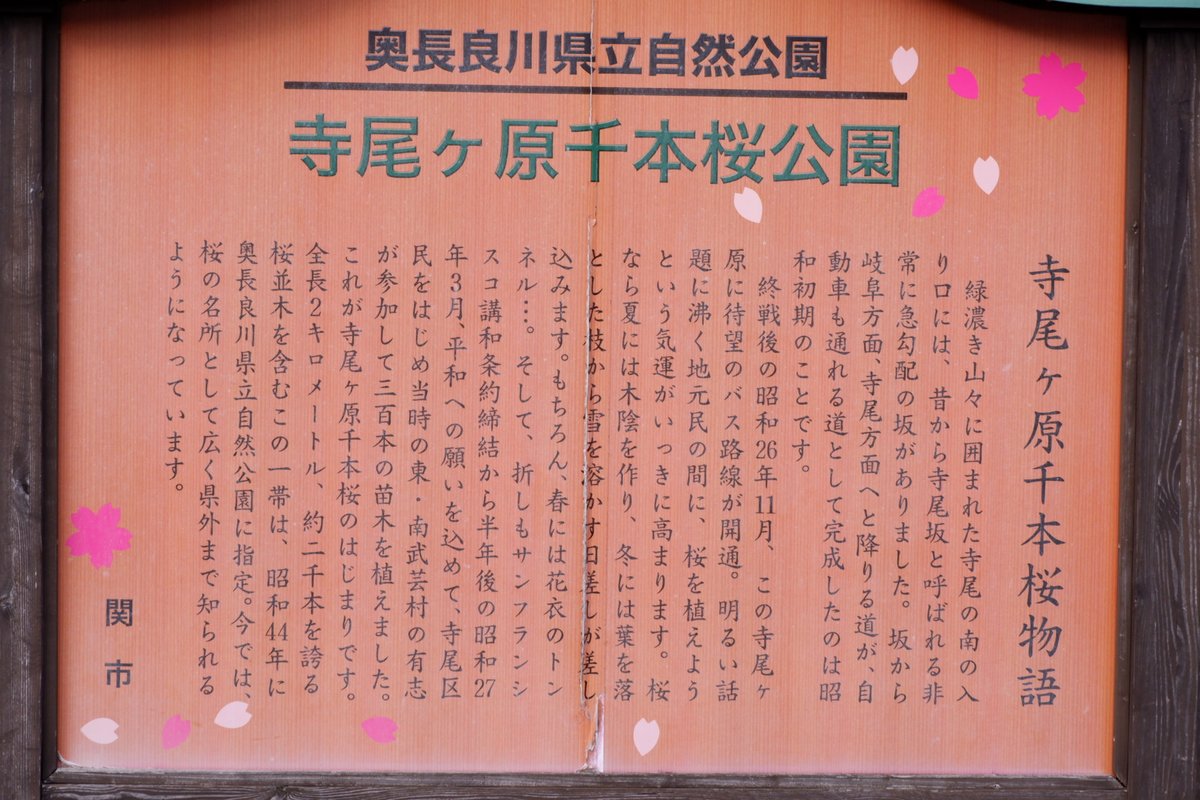 奥長良川県立自然公園
寺尾ヶ原千本桜公園
寺尾ヶ原千本桜物語
緑濃き山々に囲まれた寺尾の南の入
り口には、昔から寺尾坂と呼ばれる非
常に急勾配の坂がありました。坂から
岐阜方面、寺尾方面へと降りる道が、自
動車も通れる道として完成したのは昭
和初期のことです。
終戦後の昭和26年11月、この寺尾ヶ
原に待望のバス路線が開通。明るい話
題に沸く地元民の間に、桜を植えよう
という気運がいっきに高まります。桜
なら夏には木陰を作り、冬には葉を落
とした枝から雪を溶かす日差しが差し
込みます。もちろん、春には花衣のトン
ネル…。そして、折しもサンフランシ
スコ講和条約締結から半年後の昭和27
年3月、平和への願いを込めて、寺尾区
民をはじめ当時の東・南武芸村の有志
が参加して三百本の苗木を植えました。
これが寺尾ヶ原千本桜のはじまりです。
全長2キロメートル、約二千本を誇る
桜並木を含むこの一帯は、昭和44年に
奥長良川県立自然公園に指定。今では、
桜の名所として広く県外まで知られる
ようになっています。
関市